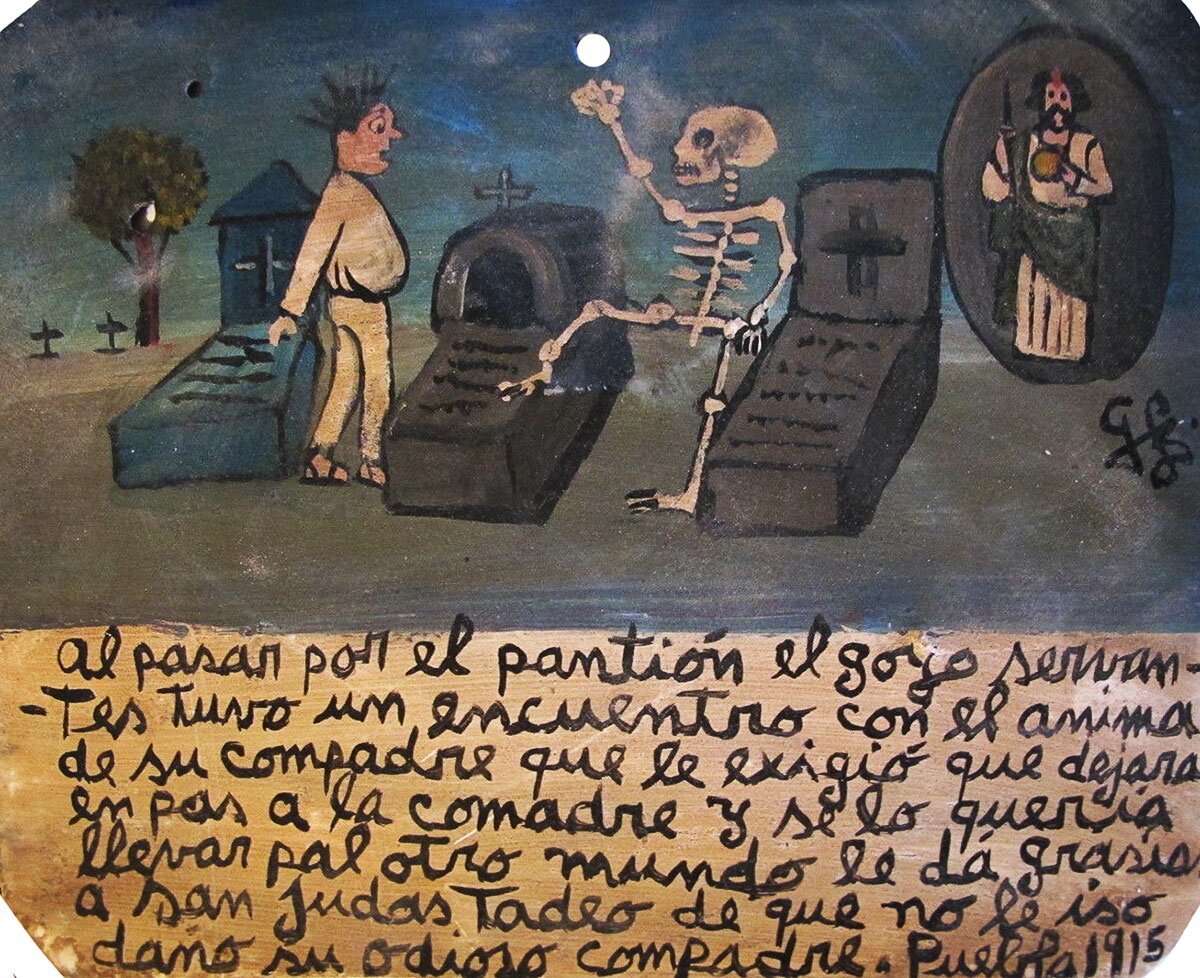 GLS
al pasar por el pantión el goyo servan-
-tes tuvo un encuentro con el anima
de su compadre que le exigió que dejara
en pas a la comadre y se lo quería
llevar pal otro mundo le dá grasias
a San Judas Tadeo de que no le iso
daño su odioso compadre. Puebla 1915